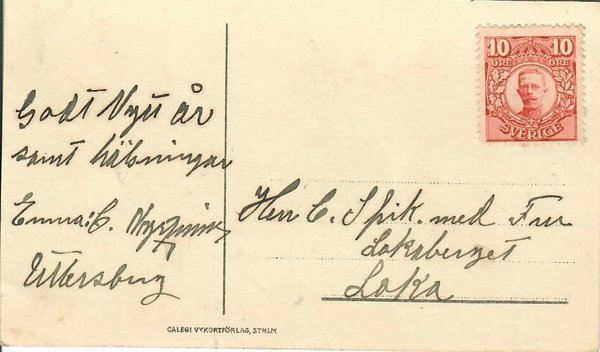 Godt Nytt år
samt hälsningar
Emma: C.
Ettersburg
10 10
ÖRE ÖRE
SVERIGE
Herr C. Spik. med Fru
Lokaberget
Loka
CALEGI VYKORTFÖRLAG, STHLM